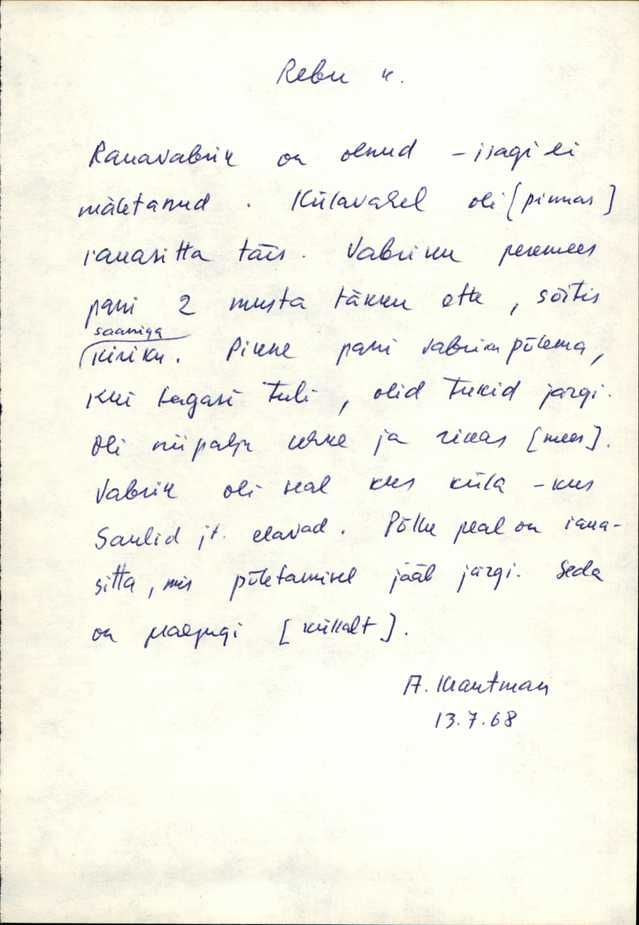 Rebu k.
Rauavabrik on olnud – isagi ei
mäletanud. Külavahel oli [pinnas]
rauasitta täis. Vabriku peremees
pani 2 musta täkku ette, sõitis
saaniga
kiriku. Pikne pani vabriku põlema,
kui tagasi tuli, olid tukid järgi.
Oli niipalju uhke ja rikas [mees].
Vabrik oli seal kus küla – kus
Saulid jt. elavad. Põllu peal on raua-
sitta, mis põletamisel jääb järgi. Seda
on praegugi [küllalt].
A. Krautman
13.7.68